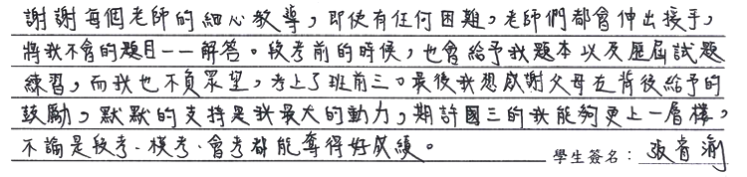 謝謝每個老師的細心教導，即使有任何困難，老師們都會伸出援手，
將我不會的題目一一解答。段考前的時候，也會給予我題本以及歷屆試題
練習，而我也不負眾望，考上了班前三。最後我想感謝父母在背後給予的
鼓勵，默默的支持是我最大的動力，期許國三的我能夠更上一層樓，
不論是段考、模考、會考都能奪得好成績。
學生簽名：張睿